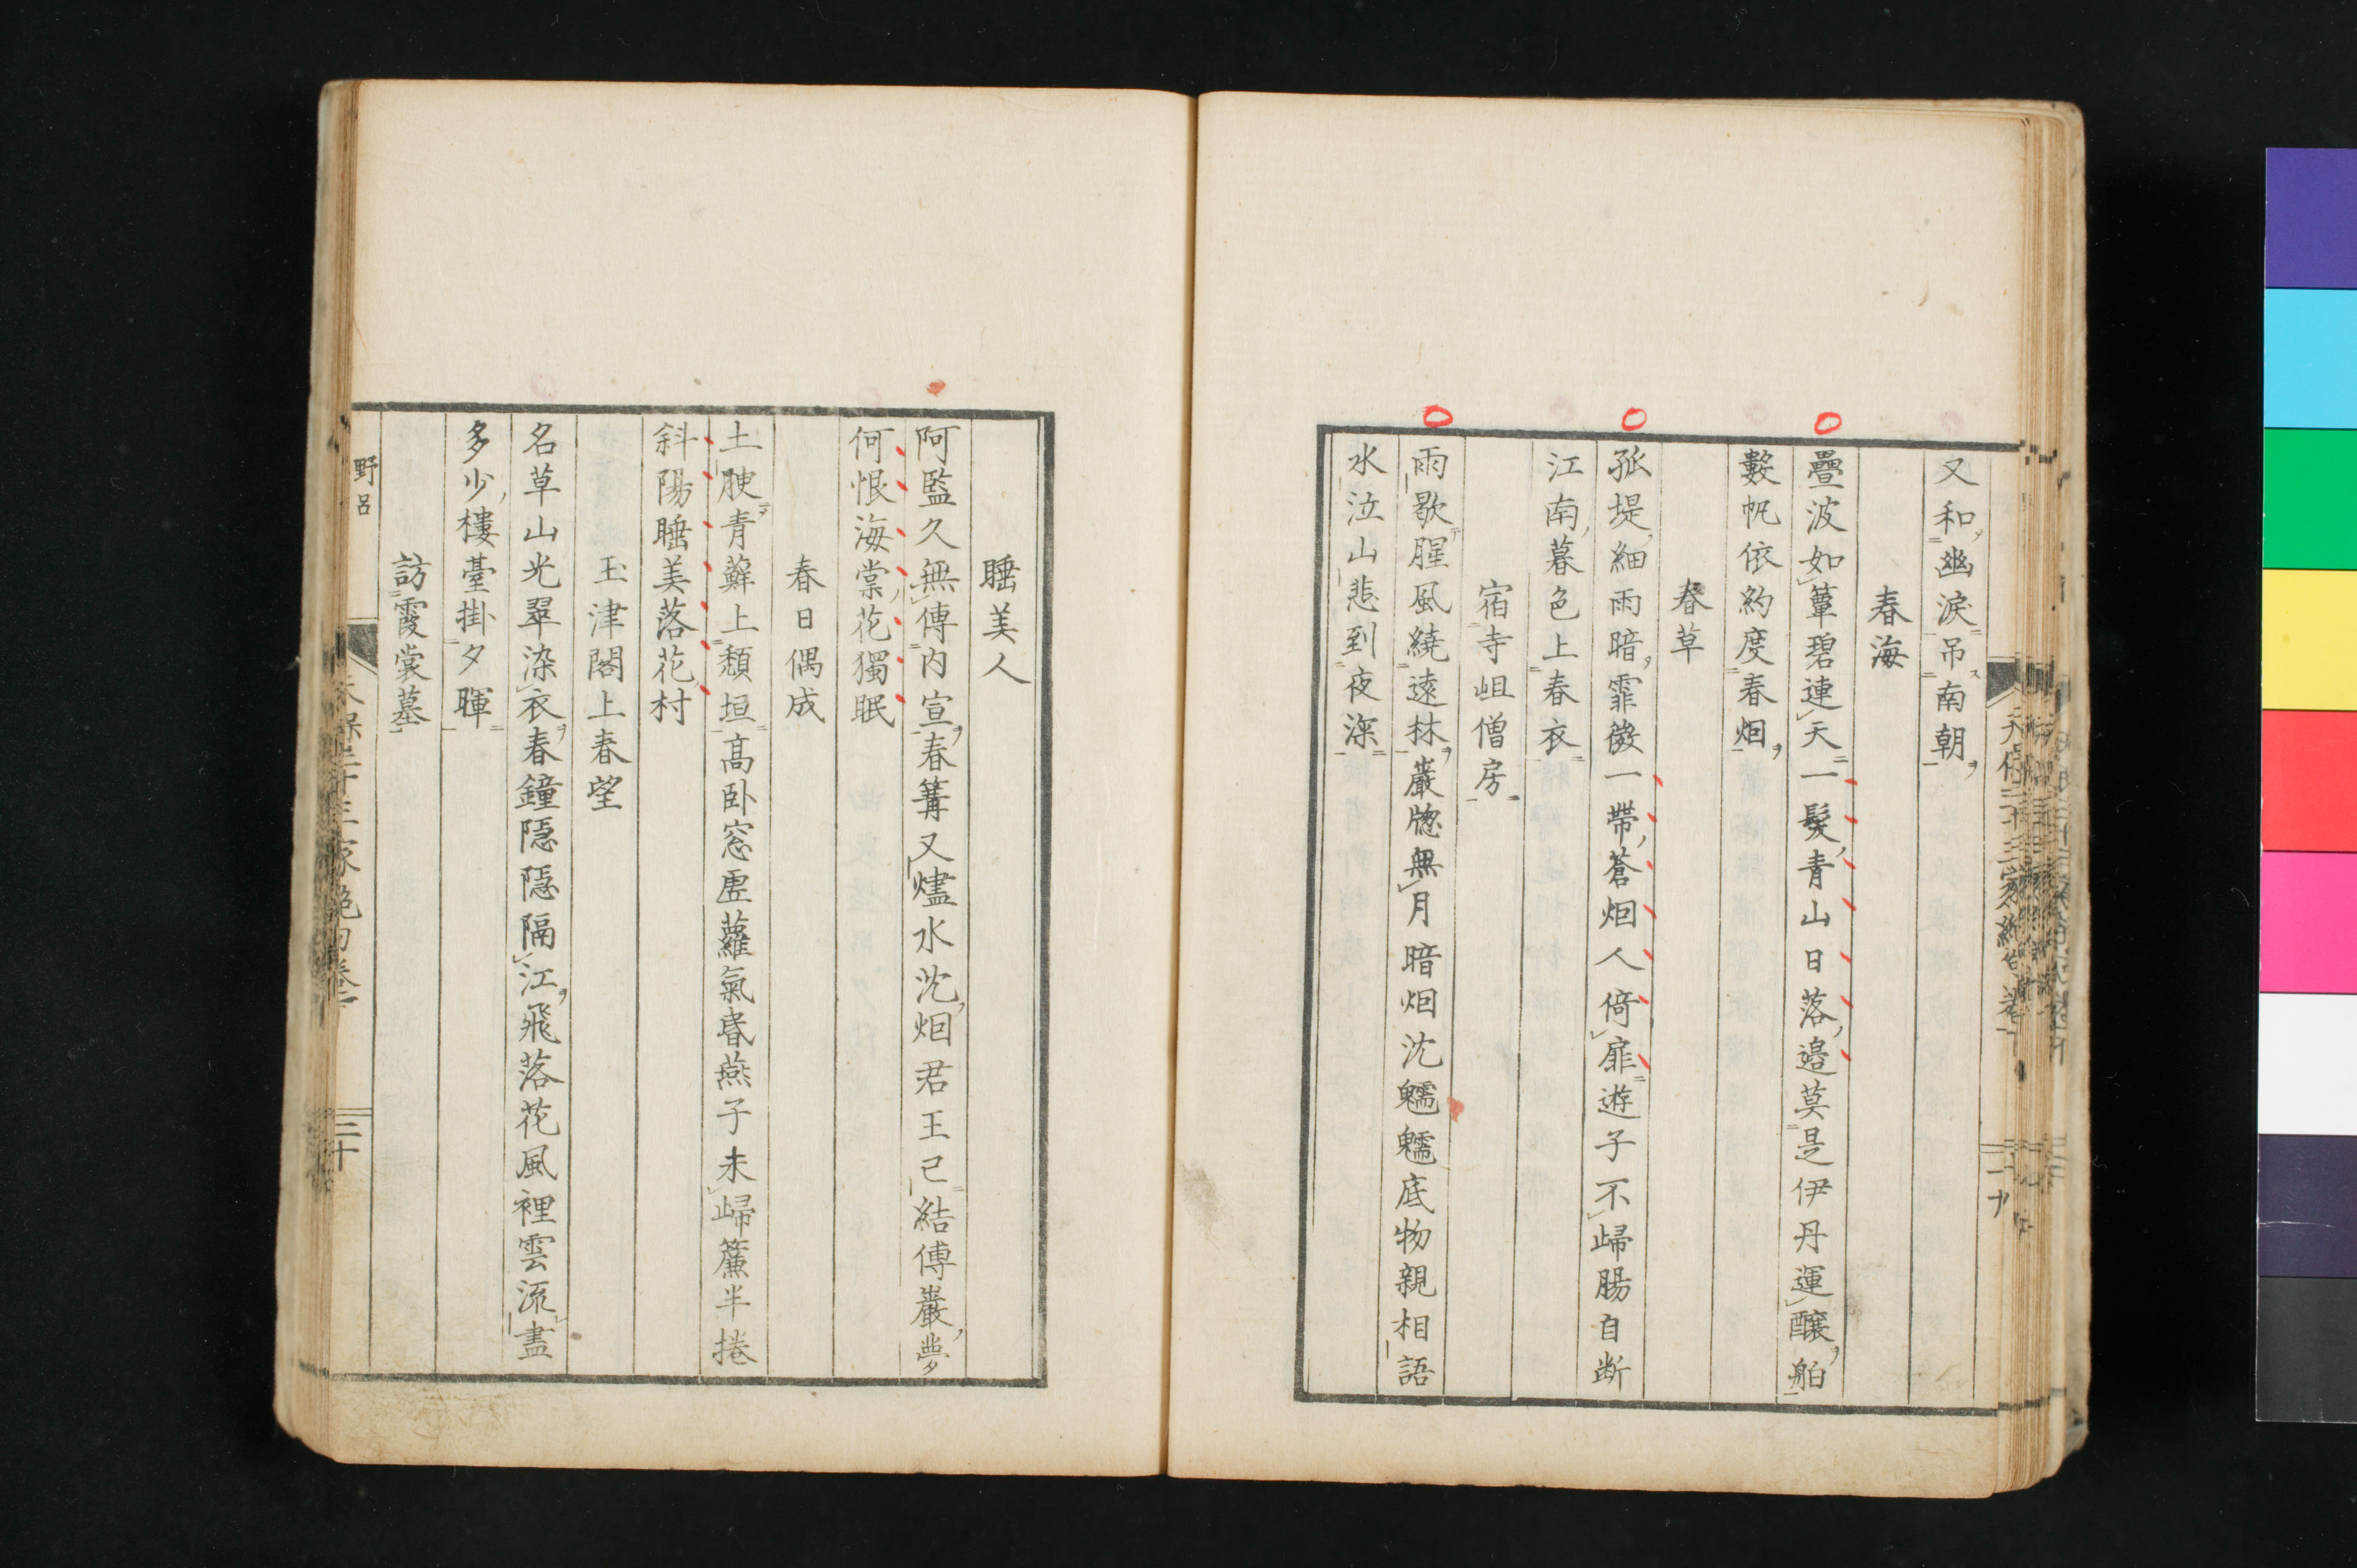 又和幽淚吊南朝
春海
疊波如簟碧連天一髮青山日落邉莫是伊丹運醸舶
數帆依約度春烟
春草
孤堤細雨暗霏微一帶蒼烟人倚扉遊子不歸腸自断
江南暮色上春衣
宿寺岨僧房
雨歇腥風繞遠林巖牎無月暗烟沈魖魖底物親相語
水泣山悲到夜深
二十九
睡美人
阿監久無傳内宣春篝又燼水沈烟君王已結傅巖夢
何恨海棠花獨眠
春日偶成
土腴青蘚上頽垣高卧窓虚蘿氣昏燕子未歸簾半捲
斜陽睡美落花村
玉津閣上春望
名草山光翠染衣春鐘隠隠隔江飛落花風裡雲流盡
多少樓臺掛夕暉
訪霞裳墓
野呂
天保三十三家絶句卷二
三十